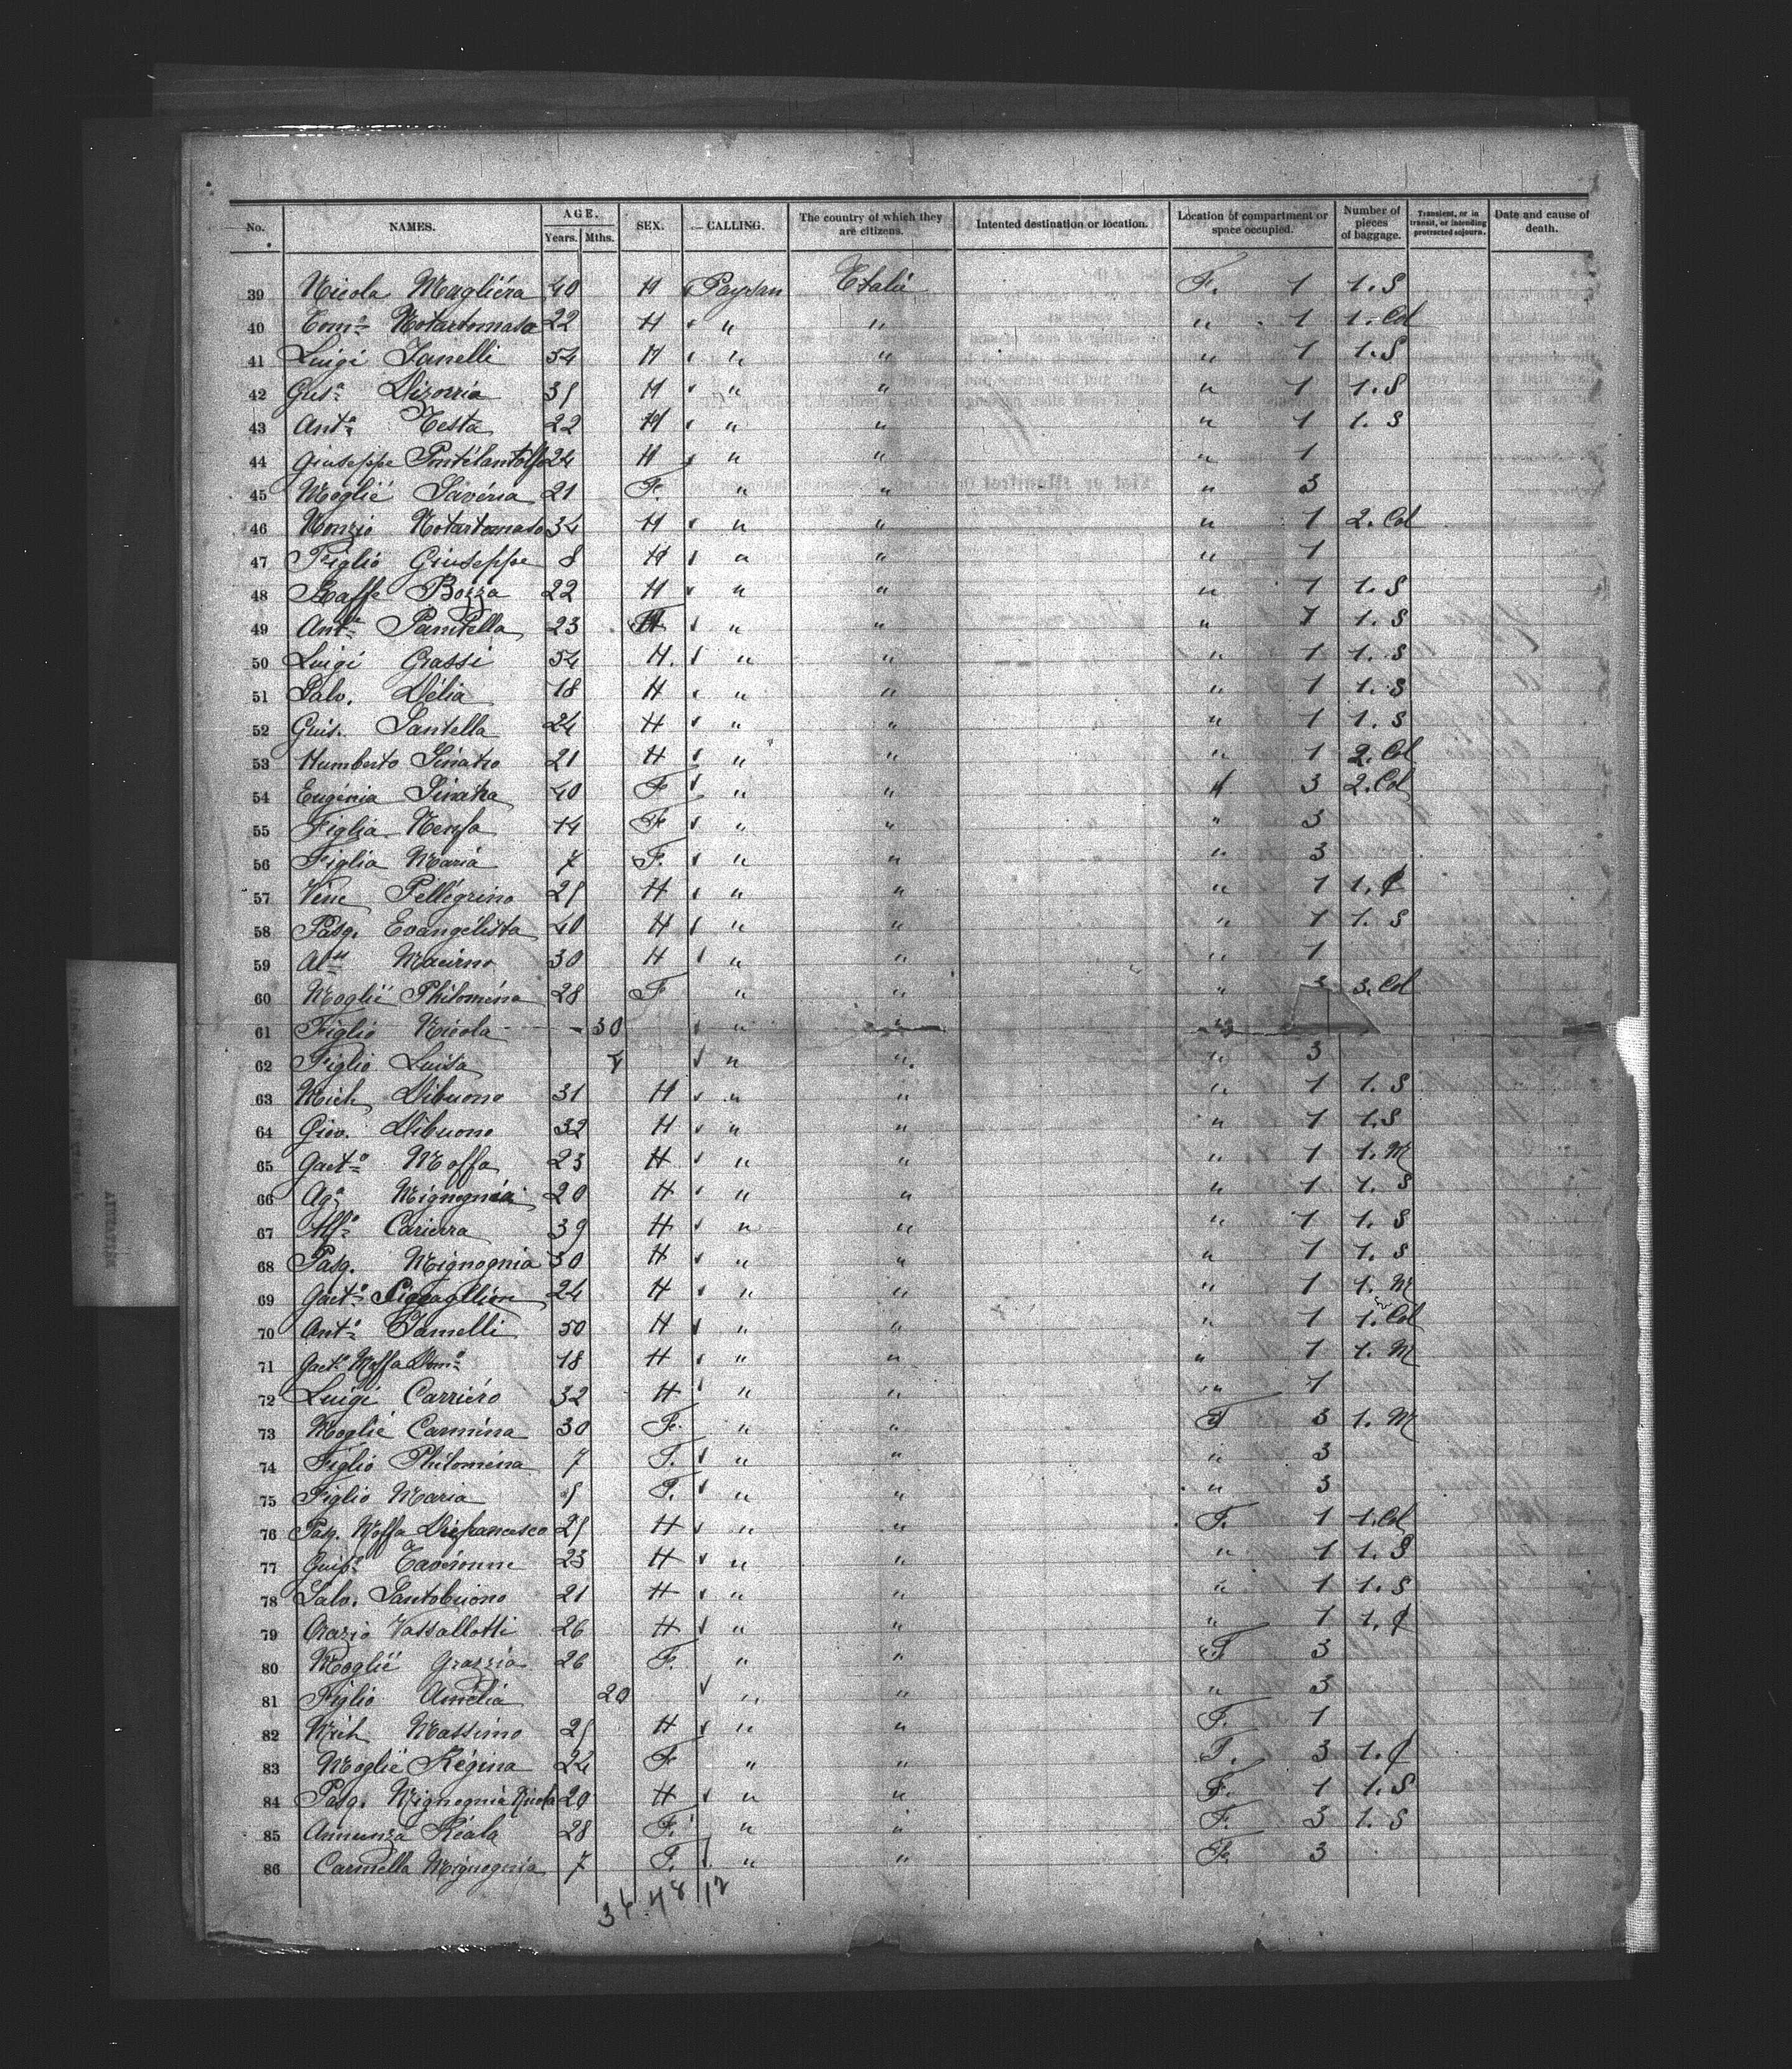 No. NAMES. AGE. Years. Mths. SEX. CALLING. The country of which they are citizens. Intented destination or location. Location of compartment or space occupied. Number of pieces of baggage. Transient, or in transit, or intending protracted sojourn. Date and cause of death.
39 Nicola Magliéra 40 H Paysan Etalie F. 1 1. S
40 Tomº Notartomaso 22 H " " " 1 1. Col
41 Luigi Janelli 54 H " " " 1 1. S
42 Gusº Dizorria 35 H " " " 1 1. S
43 Antº Testa 22 H " " " 1 1. S
44 Giuseppe 24 H " " " 1
45 Moglié Savéria 21 F. " " " 3
46 Nonzio Notartomaso 34 H " " " 1 2. Col
47 Figlio Giuseppe 8 H " " " 1
48 Raffe Bozza 22 H " " " 1 1. S
49 Antº Panitella 23 H " " " 1 1. S
50 Luigi Grassi 54 H. " " " 1 1. S
51 Salv. Délia 18 H " " " 1 1. S
52 Guis. Santella 24 H " " " 1 1. S
53 Humberto Sinatro 21 H " " " 1 2. Col
54 Eugénia Sinatra 40 F " " " 3 2. Col
55 Figlia 14 F " " " 3
56 Figlia Maria 7 F. " " " 3
57 Pellégrino 25 H " " " 1 1. ₵
58 Pasq. Evangélista 40 H " " " 1 1. S
59 30 H " " " 1
60 Moglié Philoména 28 F " " " 3 3. Col
61 Figlio Nicola - 30 " " "
62 Figlio Luisa 4 " " " 3
63 Mich Dibuono 31 H " " " 1 1. S
64 Giov. Dibuono 32 H " " " 1 1. S
65 Gaetº Moffa 23 H " " " 1 1. M
66 Agº Mignognia 20 H " " " 1 1. S
67 Alfº Carierra 39 H " " " 1 1. S
68 Pasq. Mignognia 30 H " " " 1 1. S
69 Gaetº 24 H " " " 1 1. M
70 Antº Jamelli 50 H " " " 1 1. Col
71 Gaetº Moffa Domº 18 H " " " 1 1. M
72 Luigi Carriéro 32 H " " " 1
73 Moglié Carmina 30 F. " " F 3 1. M
74 Figlio Philoména 7 F. " " " 3
75 Figlio Maria 5 F. " " " 3
76 Pasq. Moffa Difrancesco 25 H " " F. 1 1. Col
77 Guisº Tavéronne 23 H " " " 1 1. S
78 Salv. Santobuono 21 H " " " 1 1. S
79 Orazio Vassallotti 26 H " " " 1 1. ₵
80 Moglié Grazzia 26 F. " " F 3
81 Figlio Amélia 20 " " " 3
82 Mich Massimo 25 H " " F. 1
83 Moglié Régina 24 F " " F. 3 1. ₵
84 Pasq. Mignognia Nicola 20 H " " F. 1 1. S
85 Annunza Réala 28 F. " " F. 3 1. S
86 Carmella Mignognia 7 F. " " F. 3